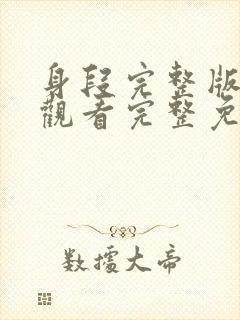 身段完整版
觀看完整免
数據大帝